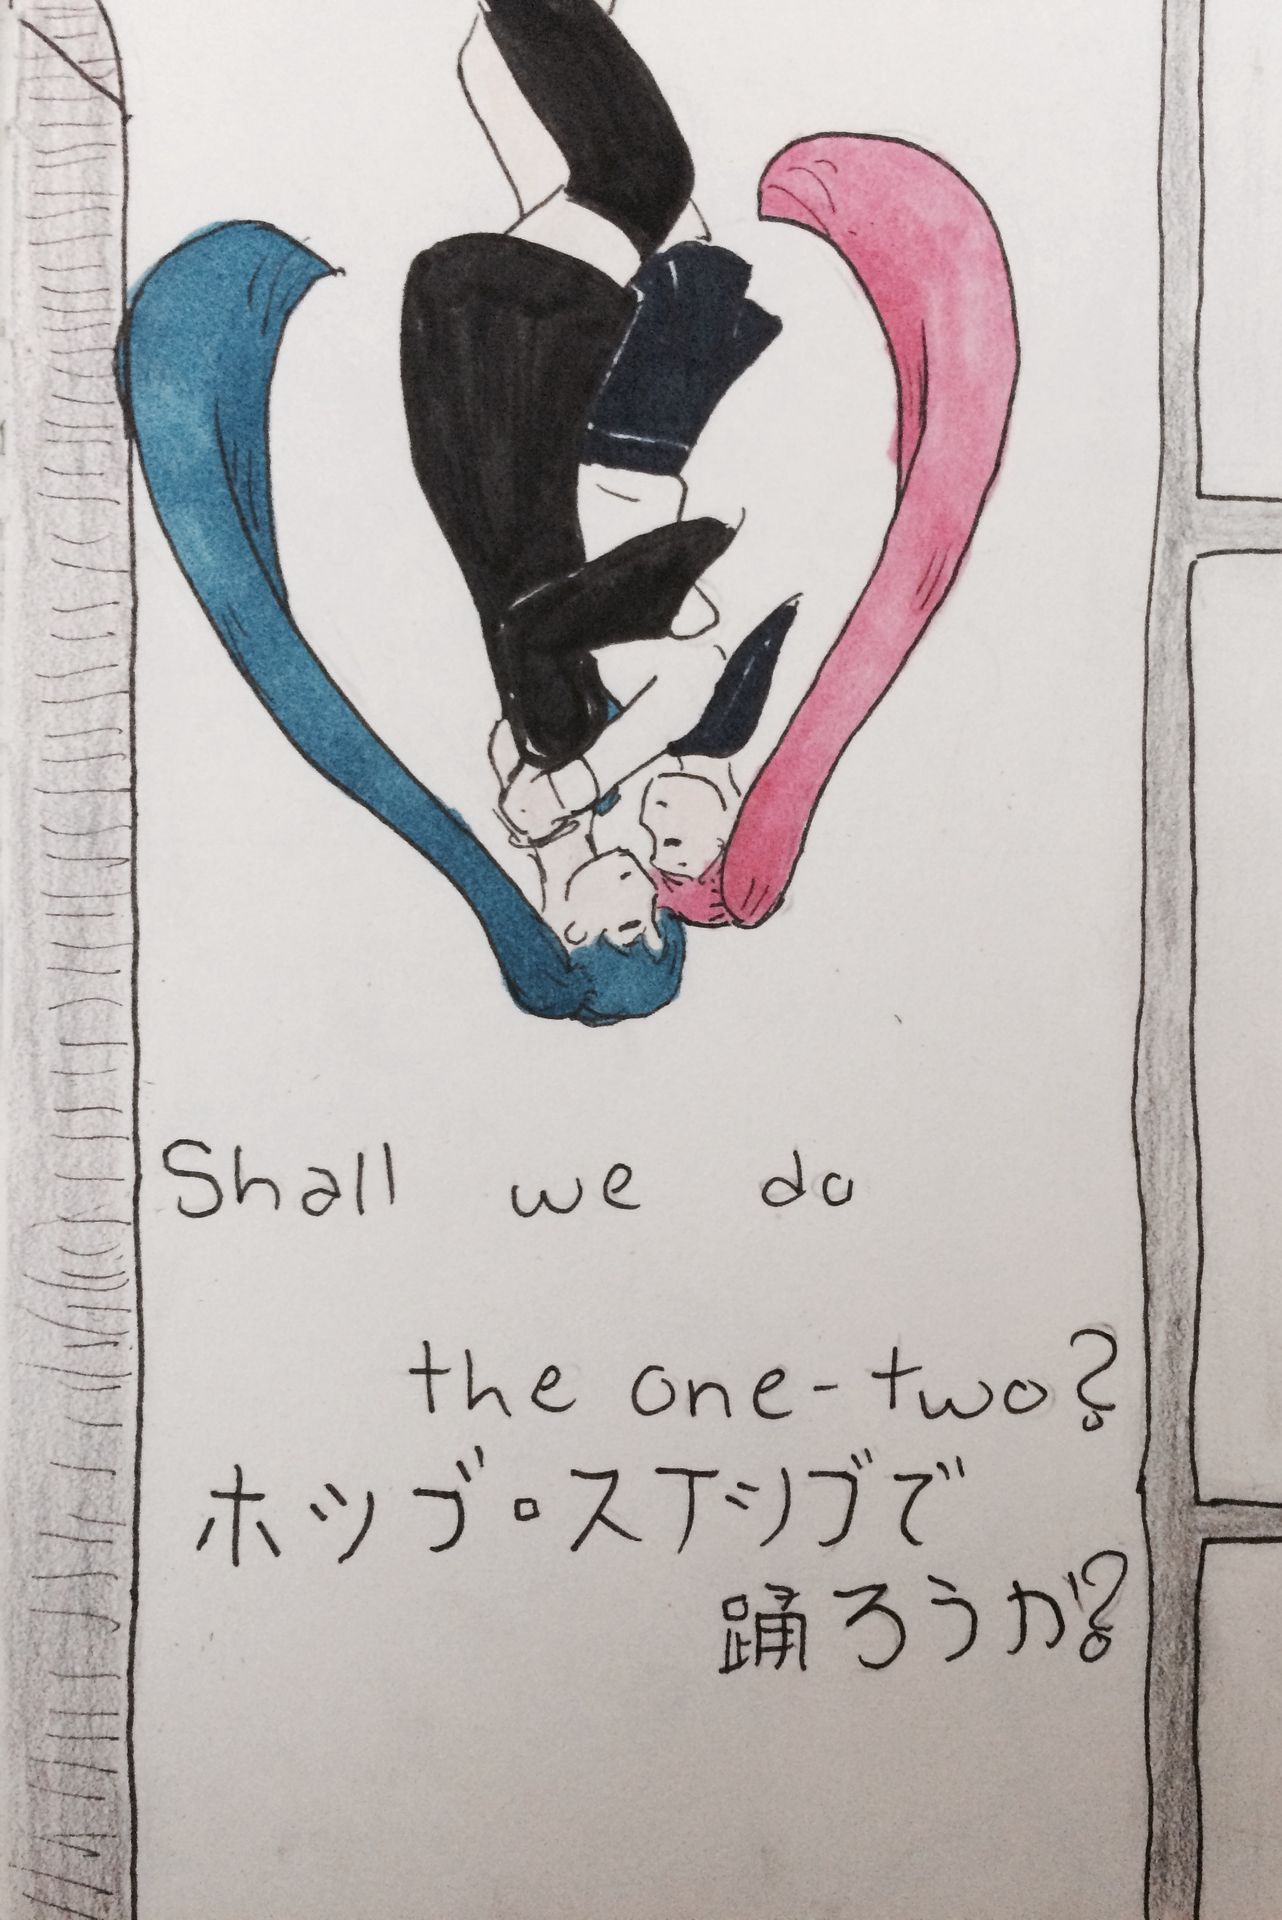 Shall we do
the one-two?
ホップ・ステップで
踊ろうか?